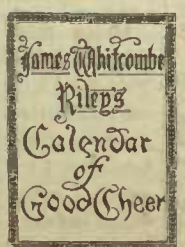 James Whitcombe
Riley's
Calendar
of
Good Cheer